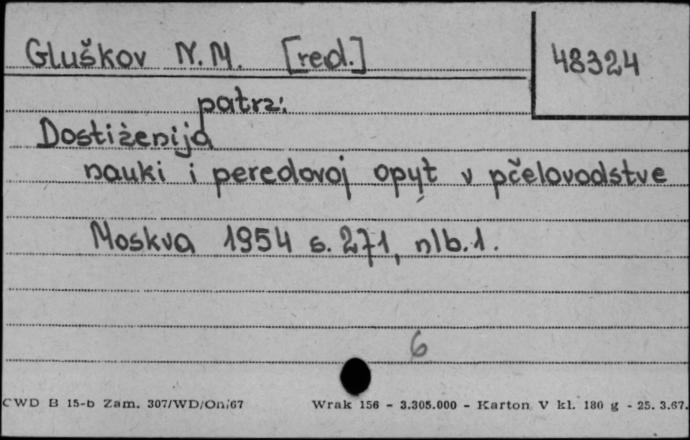 Gluškov N. M. [red.]
48324
patrz:
Dostiženija
nauki i peredovoj opyt v pčelovodstve
Moskva 1954 s. 271, nlb. 1.
6
CWD B 15-b Zam. 307/WD/On/67
Wrak 156 - 3.305.000 - Karton V kl. 180 g - 25. 3.67.